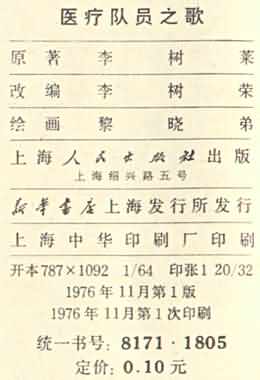 医疗队员之歌
原著 李树莱
改编 李树荣
绘画 黎晓弟
上海人民出版社出版
上海绍兴路五号
新华书店上海发行所发行
上海中华印刷厂印刷
开本787×1092 1/64 印张1 20/32
1976年11月第1版
1976年11月第1次印刷
统一书号：8171·1805
定价：0.10元